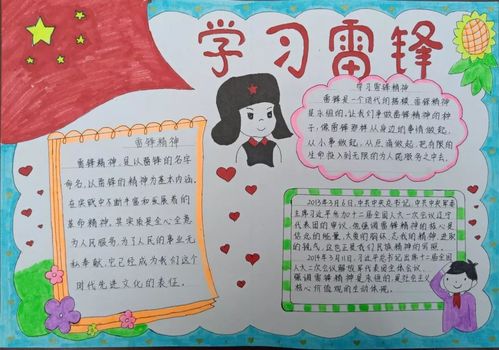 学习雷锋
雷锋精神
雷锋精神,是以雷锋的名字
命名,以雷锋的精神为基本内涵,
在实践中不断丰富和发展着的
革命精神,其实质是全心全意
为人民服务,为了人民的事业无
私奉献,它已经成为我们这个
时代先进文化的表征。
学习雷锋精神
雷锋是一个时代的楷模,雷锋精神
是永恒的,让我们争做雷锋精神的种
子,像雷锋那样从身边的事情做起,
从小事做起,从点滴做起,把有限的
生命投入到无限的为人民服务之中去。
2013年3月6日,中共中央总书记、中共中央军委
主席习近平参加十二届全国人大一次会议辽宁
代表团的审议,他强调雷锋精神的核心是
信念的能量、大爱的胸怀、忘我的精神、进取
的锐气,这也正是我们民族精神的写照。
2014年3月11日,习近平总书记出席十二届全国
人大二次会议解放军代表团全体会议,
强调雷锋精神是永恒的,是社会主义
核心价值观的生动体现。